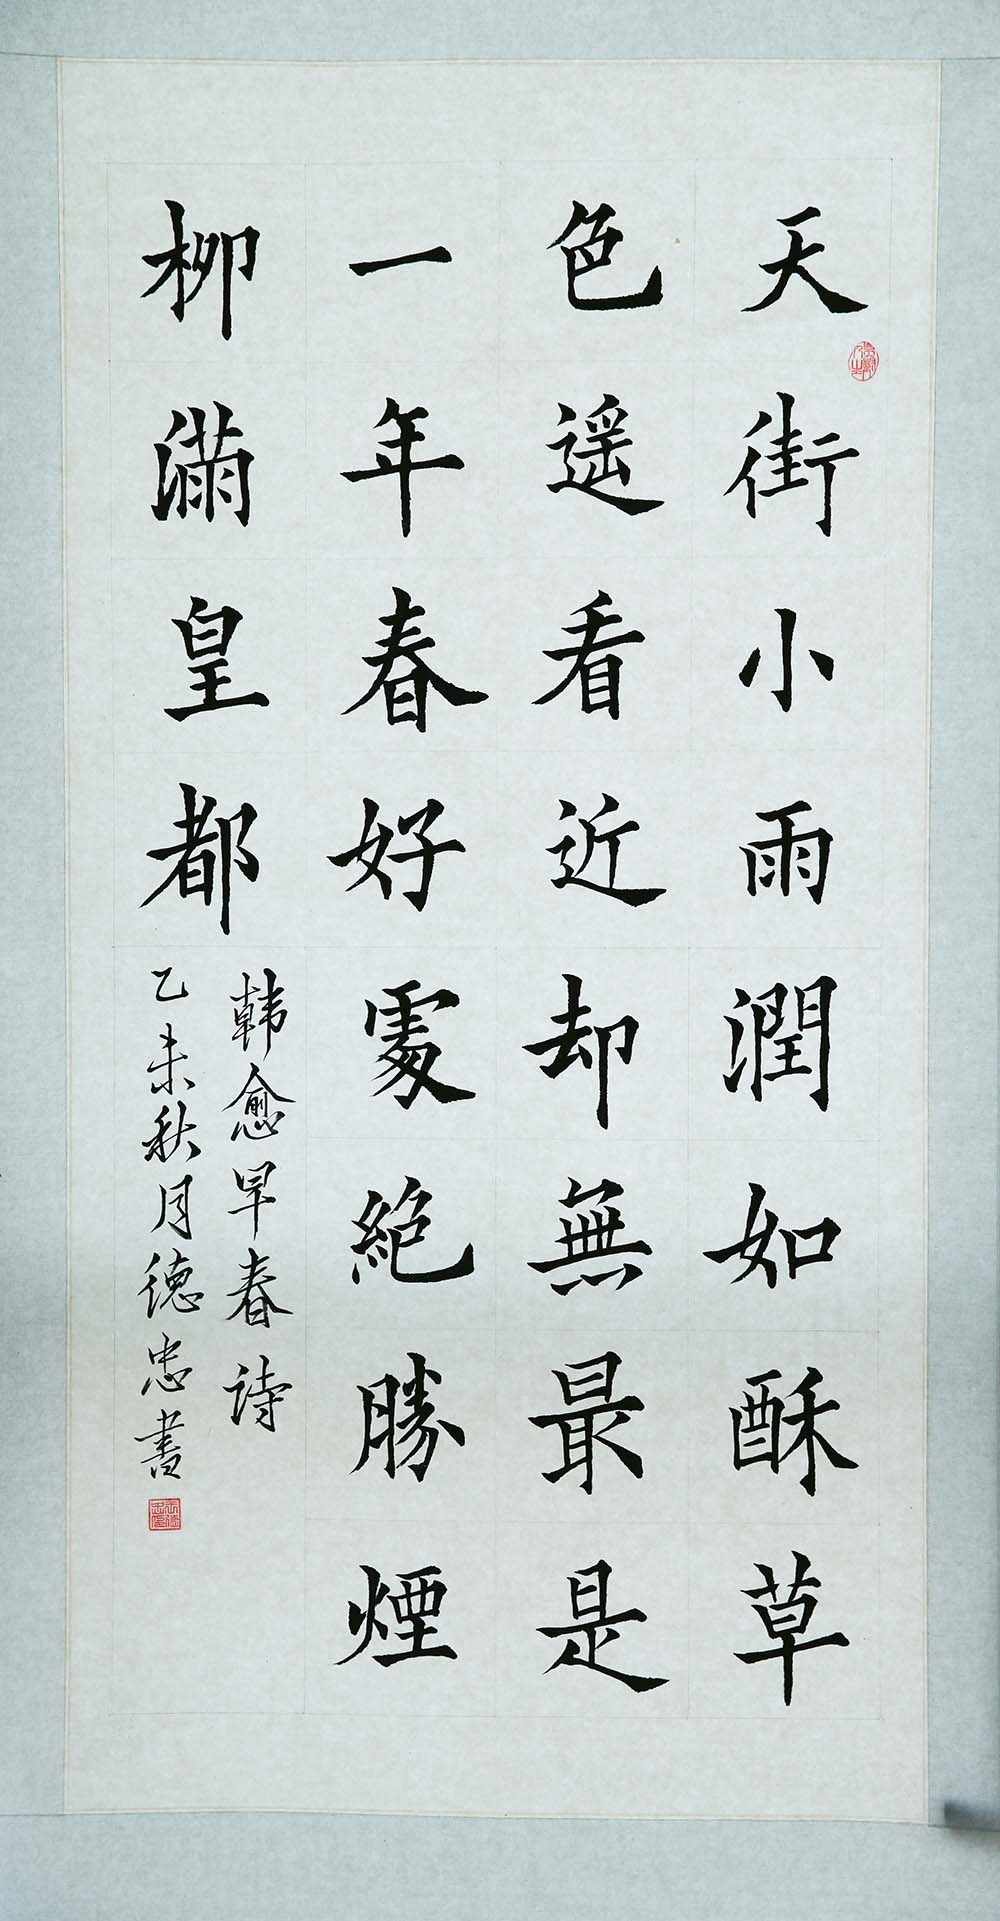 天街小雨潤如酥草
色遥看近却無最是
一年春好處絕勝煙
柳滿皇都
韩愈早春诗
乙未秋月德忠書